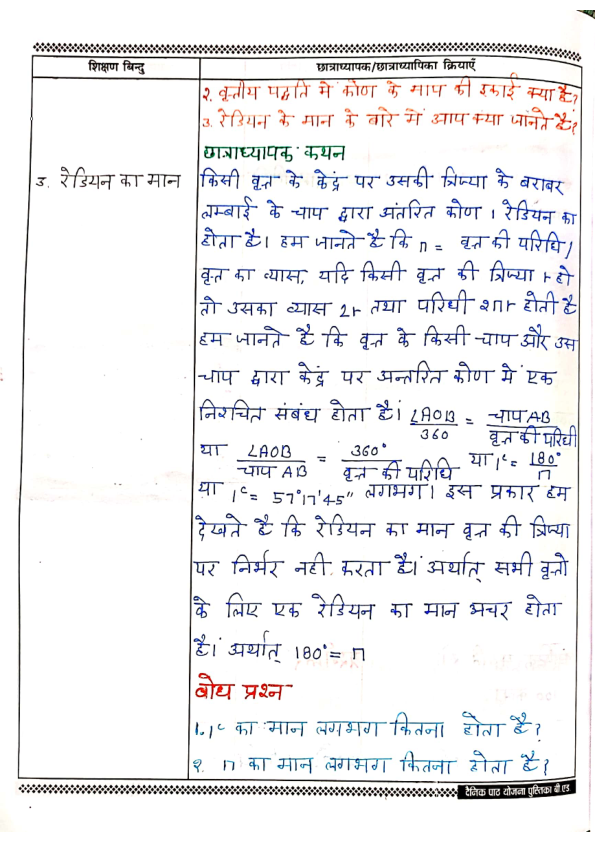 शिक्षण बिन्दु
छात्राध्यापक/छात्राध्यापिका क्रियाएँ
2. वृतीय पद्वति में कोण के माप की इकाई क्या है?
3. रेडियन के मान के बारे में आप क्या जानते है?
छात्राध्यापक कथन
3. रेडियन का मान
किसी वृत के केंद्र पर उसकी त्रिज्या के बराबर
लम्बाई के चाप द्वारा अंतरित कोण 1 रेडियन का
होता है। हम जानते है कि π = वृत की परिधि /
वृत का व्यास, यदि किसी वृत की त्रिज्या r हो
तो उसका व्यास 2r तथा परिधी 2πr होती है
हम जानते है कि वृत के किसी चाप और उस
चाप द्वारा केंद्र पर अन्तरित कोण में एक
निश्चित संबंध होता है। ∠AOB/360 = चाप AB/वृत की परिधी
या ∠AOB/चाप AB = 360°/वृत की परिधि या 1ᶜ = 180°/π
या 1ᶜ = 57°17'45" लगभग। इस प्रकार हम
देखते है कि रेडियन का मान वृत की त्रिज्या
पर निर्भर नही करता है। अर्थात् सभी वृतो
के लिए एक रेडियन का मान अचर होता
है। अर्थात् 180° = π
बोध प्रश्न
1. 1ᶜ का मान लगभग कितना होता है?
2. π का मान लगभग कितना होता है?
दैनिक पाठ योजना पुस्तिका बी.एड